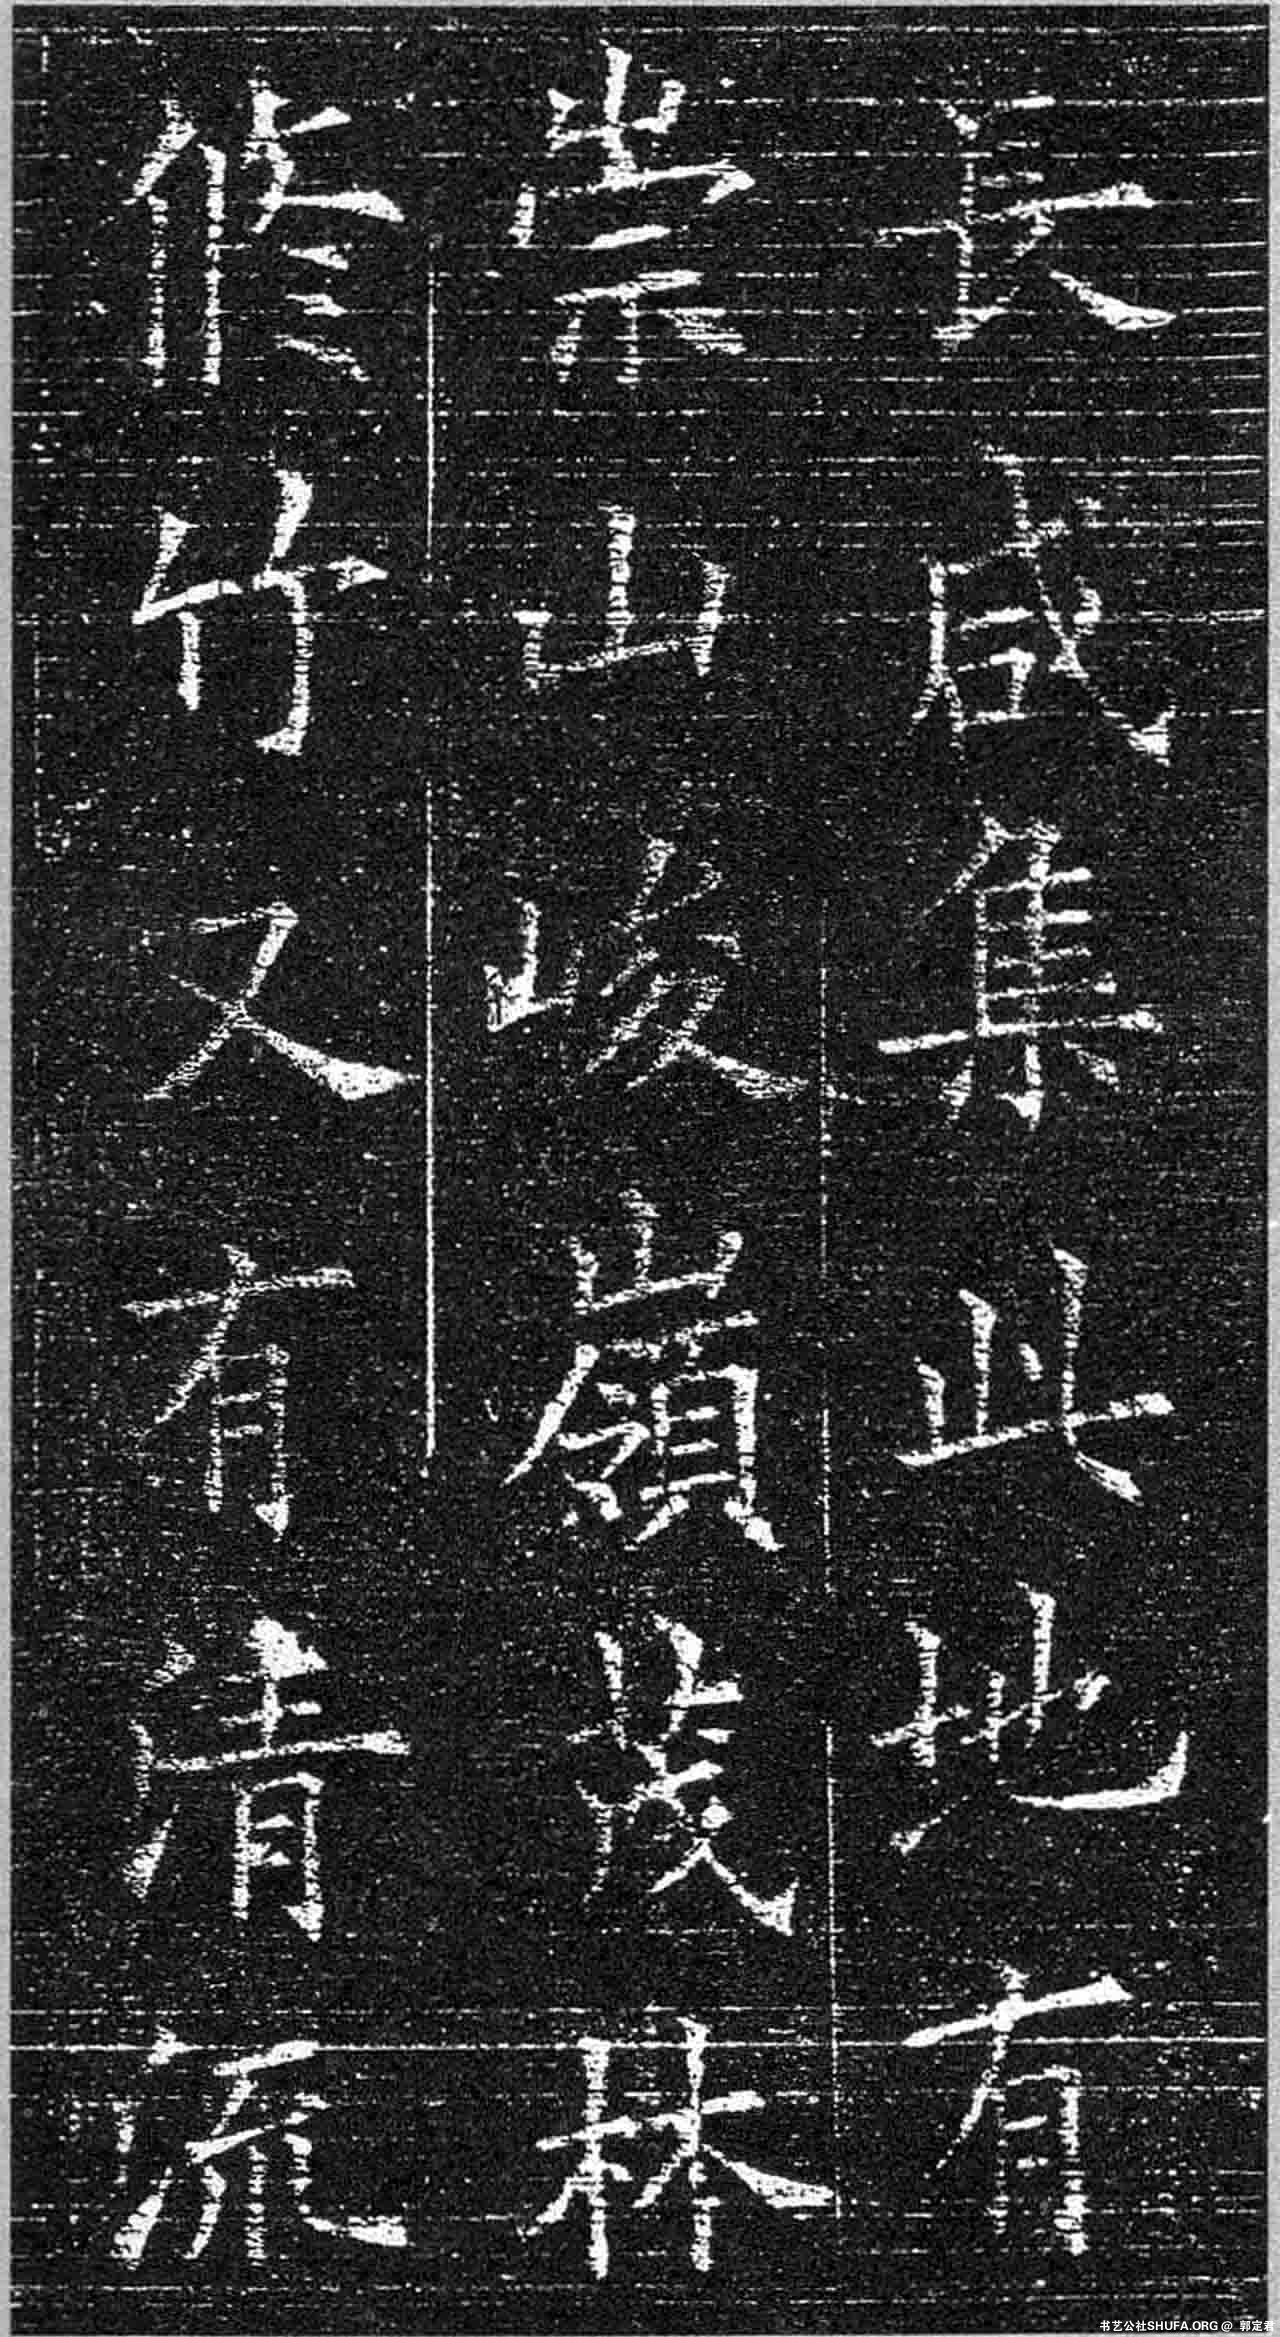 長咸集此地有
崇山峻嶺茂林
脩竹又有清流
书艺公社SHUFA.ORG @ 郭定君